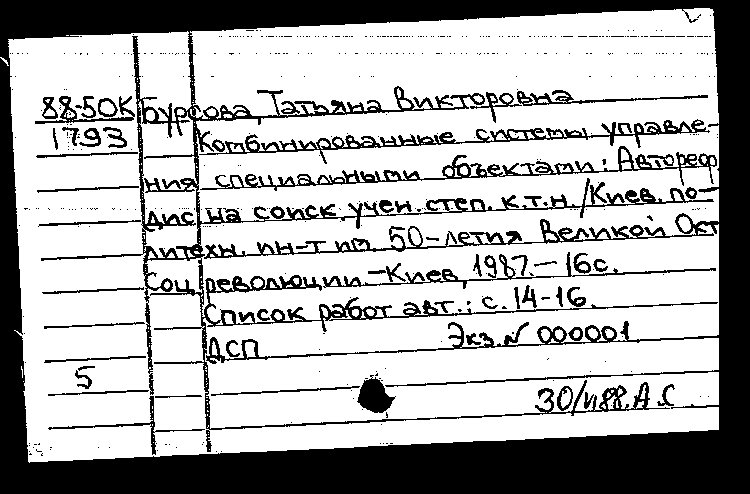 88-50К Бурсова, Татьяна Викторовна
1793 Комбинированные системы управле-
ния специальными объектами: Автореф
дис на соиск. учен. степ. к.т.н. /Киев. по-
литехн. ин-т им. 50-летия Великой Окт
Соц. революции. -Киев, 1987. - 16с.
Список работ авт.: с. 14-16.
ДСП Экз. № 000001
5